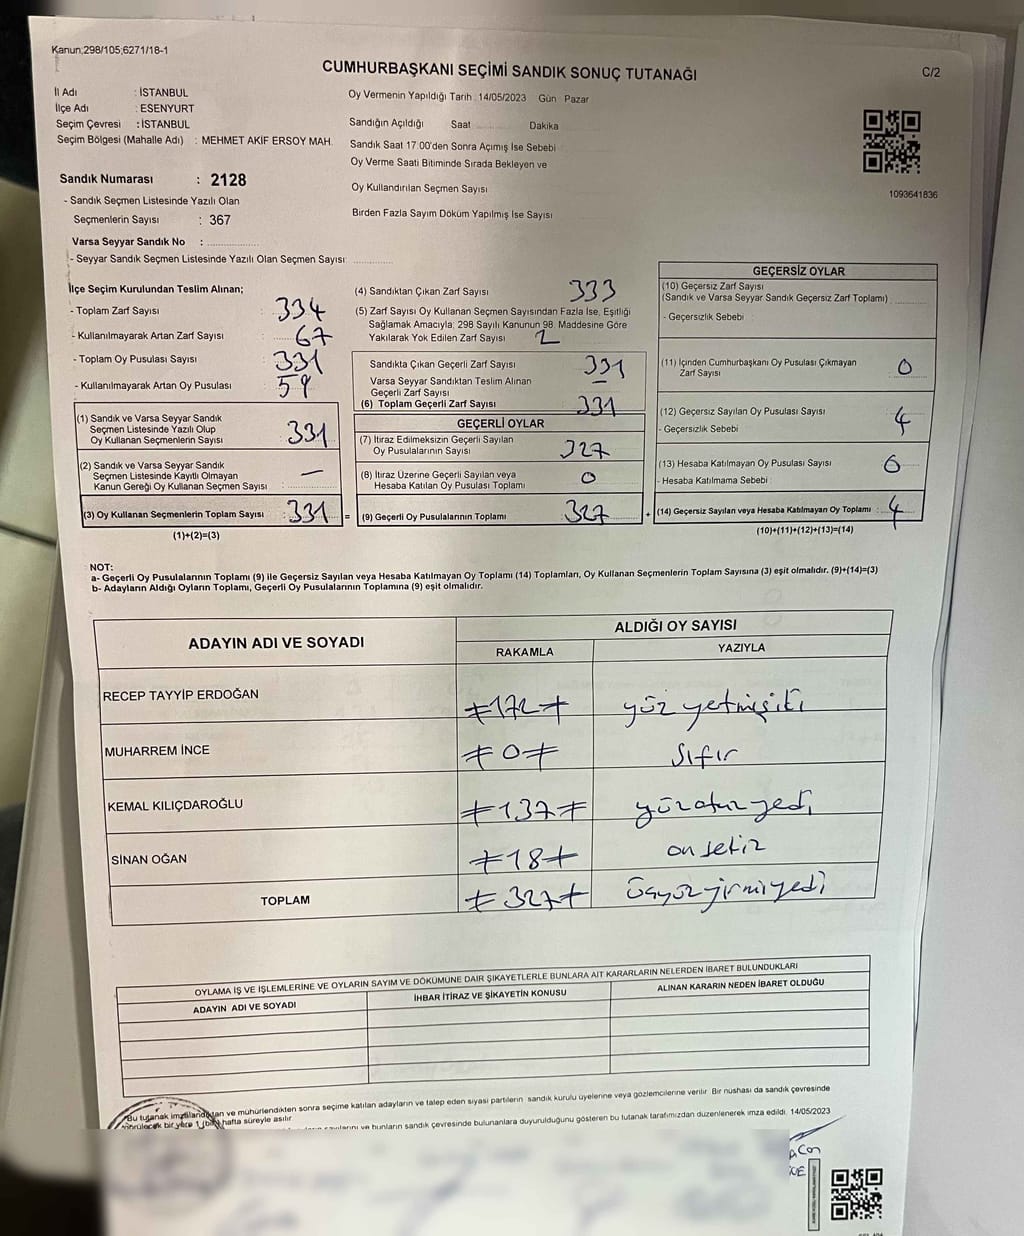 Kanun;298/105;6271/18-1
CUMHURBAŞKANI SEÇİMİ SANDIK SONUÇ TUTANAĞI
C/2
İl Adı : İSTANBUL
İlçe Adı : ESENYURT
Seçim Çevresi : İSTANBUL
Seçim Bölgesi (Mahalle Adı) : MEHMET AKİF ERSOY MAH.
Sandık Numarası : 2128
- Sandık Seçmen Listesinde Yazılı Olan
Seçmenlerin Sayısı : 367
Varsa Seyyar Sandık No :
- Seyyar Sandık Seçmen Listesinde Yazılı Olan Seçmen Sayısı:
Oy Vermenin Yapıldığı Tarih : 14/05/2023 Gün : Pazar
Sandığın Açıldığı Saat Dakika
Sandık Saat 17:00'den Sonra Açımış İse Sebebi
Oy Verme Saati Bitiminde Sırada Bekleyen ve
Oy Kullandırılan Seçmen Sayısı
Birden Fazla Sayım Döküm Yapılmış İse Sayısı
1093641836
İlçe Seçim Kurulundan Teslim Alınan;
- Toplam Zarf Sayısı : 334
- Kullanılmayarak Artan Zarf Sayısı : 67
- Toplam Oy Pusulası Sayısı : 331
- Kullanılmayarak Artan Oy Pusulası : 59
(1) Sandık ve Varsa Seyyar Sandık
Seçmen Listesinde Yazılı Olup
Oy Kullanan Seçmenlerin Sayısı : 331
(2) Sandık ve Varsa Seyyar Sandık
Seçmen Listesinde Kayıtlı Olmayan
Kanun Gereği Oy Kullanan Seçmen Sayısı : —
(3) Oy Kullanan Seçmenlerin Toplam Sayısı : 331 =
(1)+(2)=(3)
(4) Sandıktan Çıkan Zarf Sayısı 333
(5) Zarf Sayısı Oy Kullanan Seçmen Sayısından Fazla İse, Eşitliği
Sağlamak Amacıyla; 298 Sayılı Kanunun 98. Maddesine Göre
Yakılarak Yok Edilen Zarf Sayısı 2
Sandıkta Çıkan Geçerli Zarf Sayısı 331
Varsa Seyyar Sandıktan Teslim Alınan
Geçerli Zarf Sayısı —
(6) Toplam Geçerli Zarf Sayısı 331
GEÇERLİ OYLAR
(7) İtiraz Edilmeksizin Geçerli Sayılan
Oy Pusulalarının Sayısı 327
(8) İtiraz Üzerine Geçerli Sayılan veya
Hesaba Katılan Oy Pusulası Toplamı 0
(9) Geçerli Oy Pusulalarının Toplamı 327 +
GEÇERSİZ OYLAR
(10) Geçersiz Zarf Sayısı
(Sandık ve Varsa Seyyar Sandık Geçersiz Zarf Toplamı)
- Geçersizlik Sebebi :
(11) İçinden Cumhurbaşkanı Oy Pusulası Çıkmayan
Zarf Sayısı 0
(12) Geçersiz Sayılan Oy Pusulası Sayısı 4
- Geçersizlik Sebebi
(13) Hesaba Katılmayan Oy Pusulası Sayısı 0
- Hesaba Katılmama Sebebi :
(14) Geçersiz Sayılan veya Hesaba Katılmayan Oy Toplamı : 4
(10)+(11)+(12)+(13)=(14)
NOT:
a- Geçerli Oy Pusulalarının Toplamı (9) ile Geçersiz Sayılan veya Hesaba Katılmayan Oy Toplamı (14) Toplamları, Oy Kullanan Seçmenlerin Toplam Sayısına (3) eşit olmalıdır. (9)+(14)=(3)
b- Adayların Aldığı Oyların Toplamı, Geçerli Oy Pusulalarının Toplamına (9) eşit olmalıdır.
ADAYIN ADI VE SOYADI
ALDIĞI OY SAYISI
RAKAMLA YAZIYLA
RECEP TAYYİP ERDOĞAN ≠172≠ yüz yetmiş iki
MUHARREM İNCE ≠0≠ sıfır
KEMAL KILIÇDAROĞLU ≠137≠ yüz otuz yedi
SİNAN OĞAN ≠18≠ on sekiz
TOPLAM ≠327≠ üçyüz yirmi yedi
OYLAMA İŞ VE İŞLEMLERİNE VE OYLARIN SAYIM VE DÖKÜMÜNE DAİR ŞİKAYETLERLE BUNLARA AİT KARARLARIN NELERDEN İBARET BULUNDUKLARI
ADAYIN ADI VE SOYADI İHBAR İTİRAZ VE ŞİKAYETİN KONUSU ALINAN KARARIN NEDEN İBARET OLDUĞU
Bu tutanak imzalandıktan ve mühürlendikten sonra seçime katılan adayların ve talep eden siyasi partilerin sandık kurulu üyelerine veya gözlemcilerine verilir. Bir nüshası da sandık çevresinde
görülecek bir yere 1 (bir) hafta süreyle asılır.
ve bunların sandık çevresinde bulunanlara duyurulduğunu gösteren bu tutanak tarafımızdan düzenlenerek imza edildi. 14/05/2023